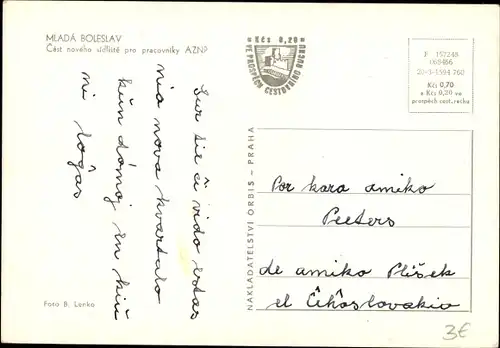 MLADÁ BOLESLAV
Část nového sídliště pro pracovníky AZNP
Sur tie ĉi vido estas
nia nova kvartalo
kun domoj en kiu
ni loĝas
Foto B. Lenko
NAKLADATELSTVÍ ORBIS – PRAHA
Kčs 0,20
VE PROSPĚCH CESTOVNÍHO RUCHU
F 157248
20-3-1594 760
Kčs 0,70
+ Kčs 0,20 ve
prospěch cest. ruchu
Por kara amiko
Peeters
de amiko Plíšek
el Ĉiĥoslovakio
3€